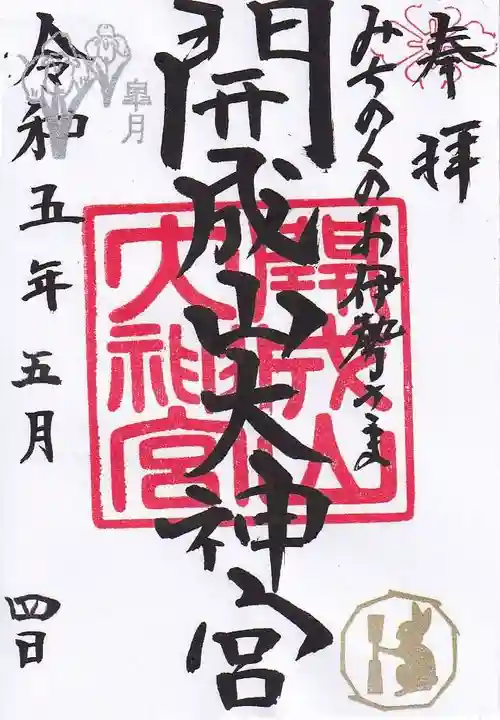 奉拝
みちのくのお伊勢さま
開成山大神宮
開成山
大神宮
皐月
令和五年五月四日